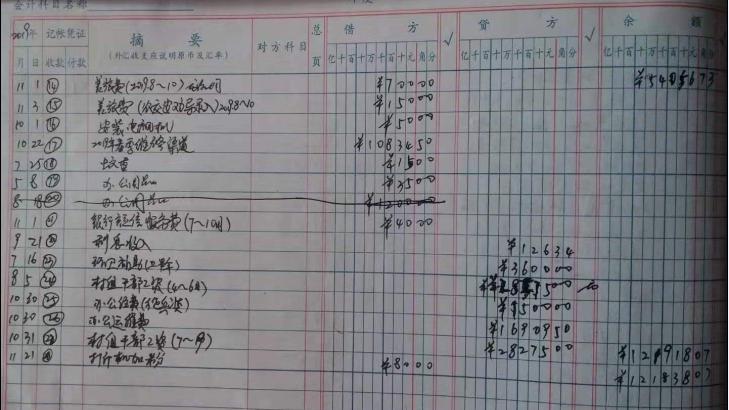 会计科目名称
2019年 记帐凭证 摘要 对方科目 总页 借方 √ 贷方 √ 余额
月 日 收款 付款 (外汇收支应说明原币及汇率) 亿千百十万千百十元角分 亿千百十万千百十元角分 亿千百十万千百十元角分
11 1 ⑭ 差旅费(2019.8~10) ¥70000 ¥5405673
11 3 ⑮ 差旅费 2019.8~10 ¥15000
10 1 ⑯ 安装 ¥5000
10 22 ⑰ 2019年春季维修渠道 ¥1083450
7 25 ⑱ ¥1500
5 8 ⑲ 办公用品 ¥3500
8 18 ⑳ 办公用品 ¥120000
11 1 银行短信服务费(7~10月) ¥4000
9 21 利息收入 ¥12634
7 16 ¥360000
8 5 村组干部工资(4~6月)
10 30 ㉕ 办公经费 ¥150000
10 30 ㉖ 办公运转费 ¥1690950
10 31 村组干部工资 ¥2827500 ¥12191807
11 21 打印机加粉 ¥8000 ¥12183807